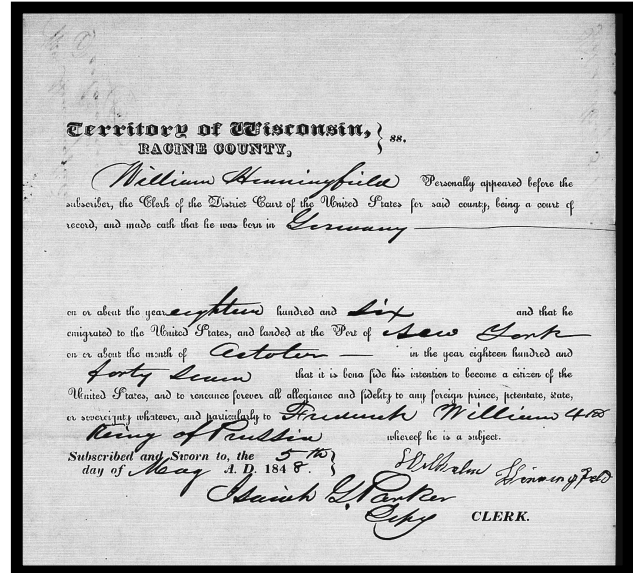 Territory of Wisconsin, } ss.
RACINE COUNTY,
William Henningfield Personally appeared before the
subscriber, the Clerk of the District Court of the United States for said county, being a court of
record, and made oath that he was born in Germany
on or about the year eighteen hundred and six and that he
emigrated to the United States, and landed at the Port of New York
on or about the month of October in the year eighteen hundred and
forty seven that it is bona fide his intention to become a citizen of the
United States, and to renounce forever all allegiance and fidelity to any foreign prince, potentate, state,
or sovereignty whatever, and particularly to Frederick William 4th
King of Prussia whereof he is a subject.
Subscribed and Sworn to, the 5th }
day of May A. D. 1848. }
Wilhelm Henningfeld
Isaiah G. Parker
Depy CLERK.